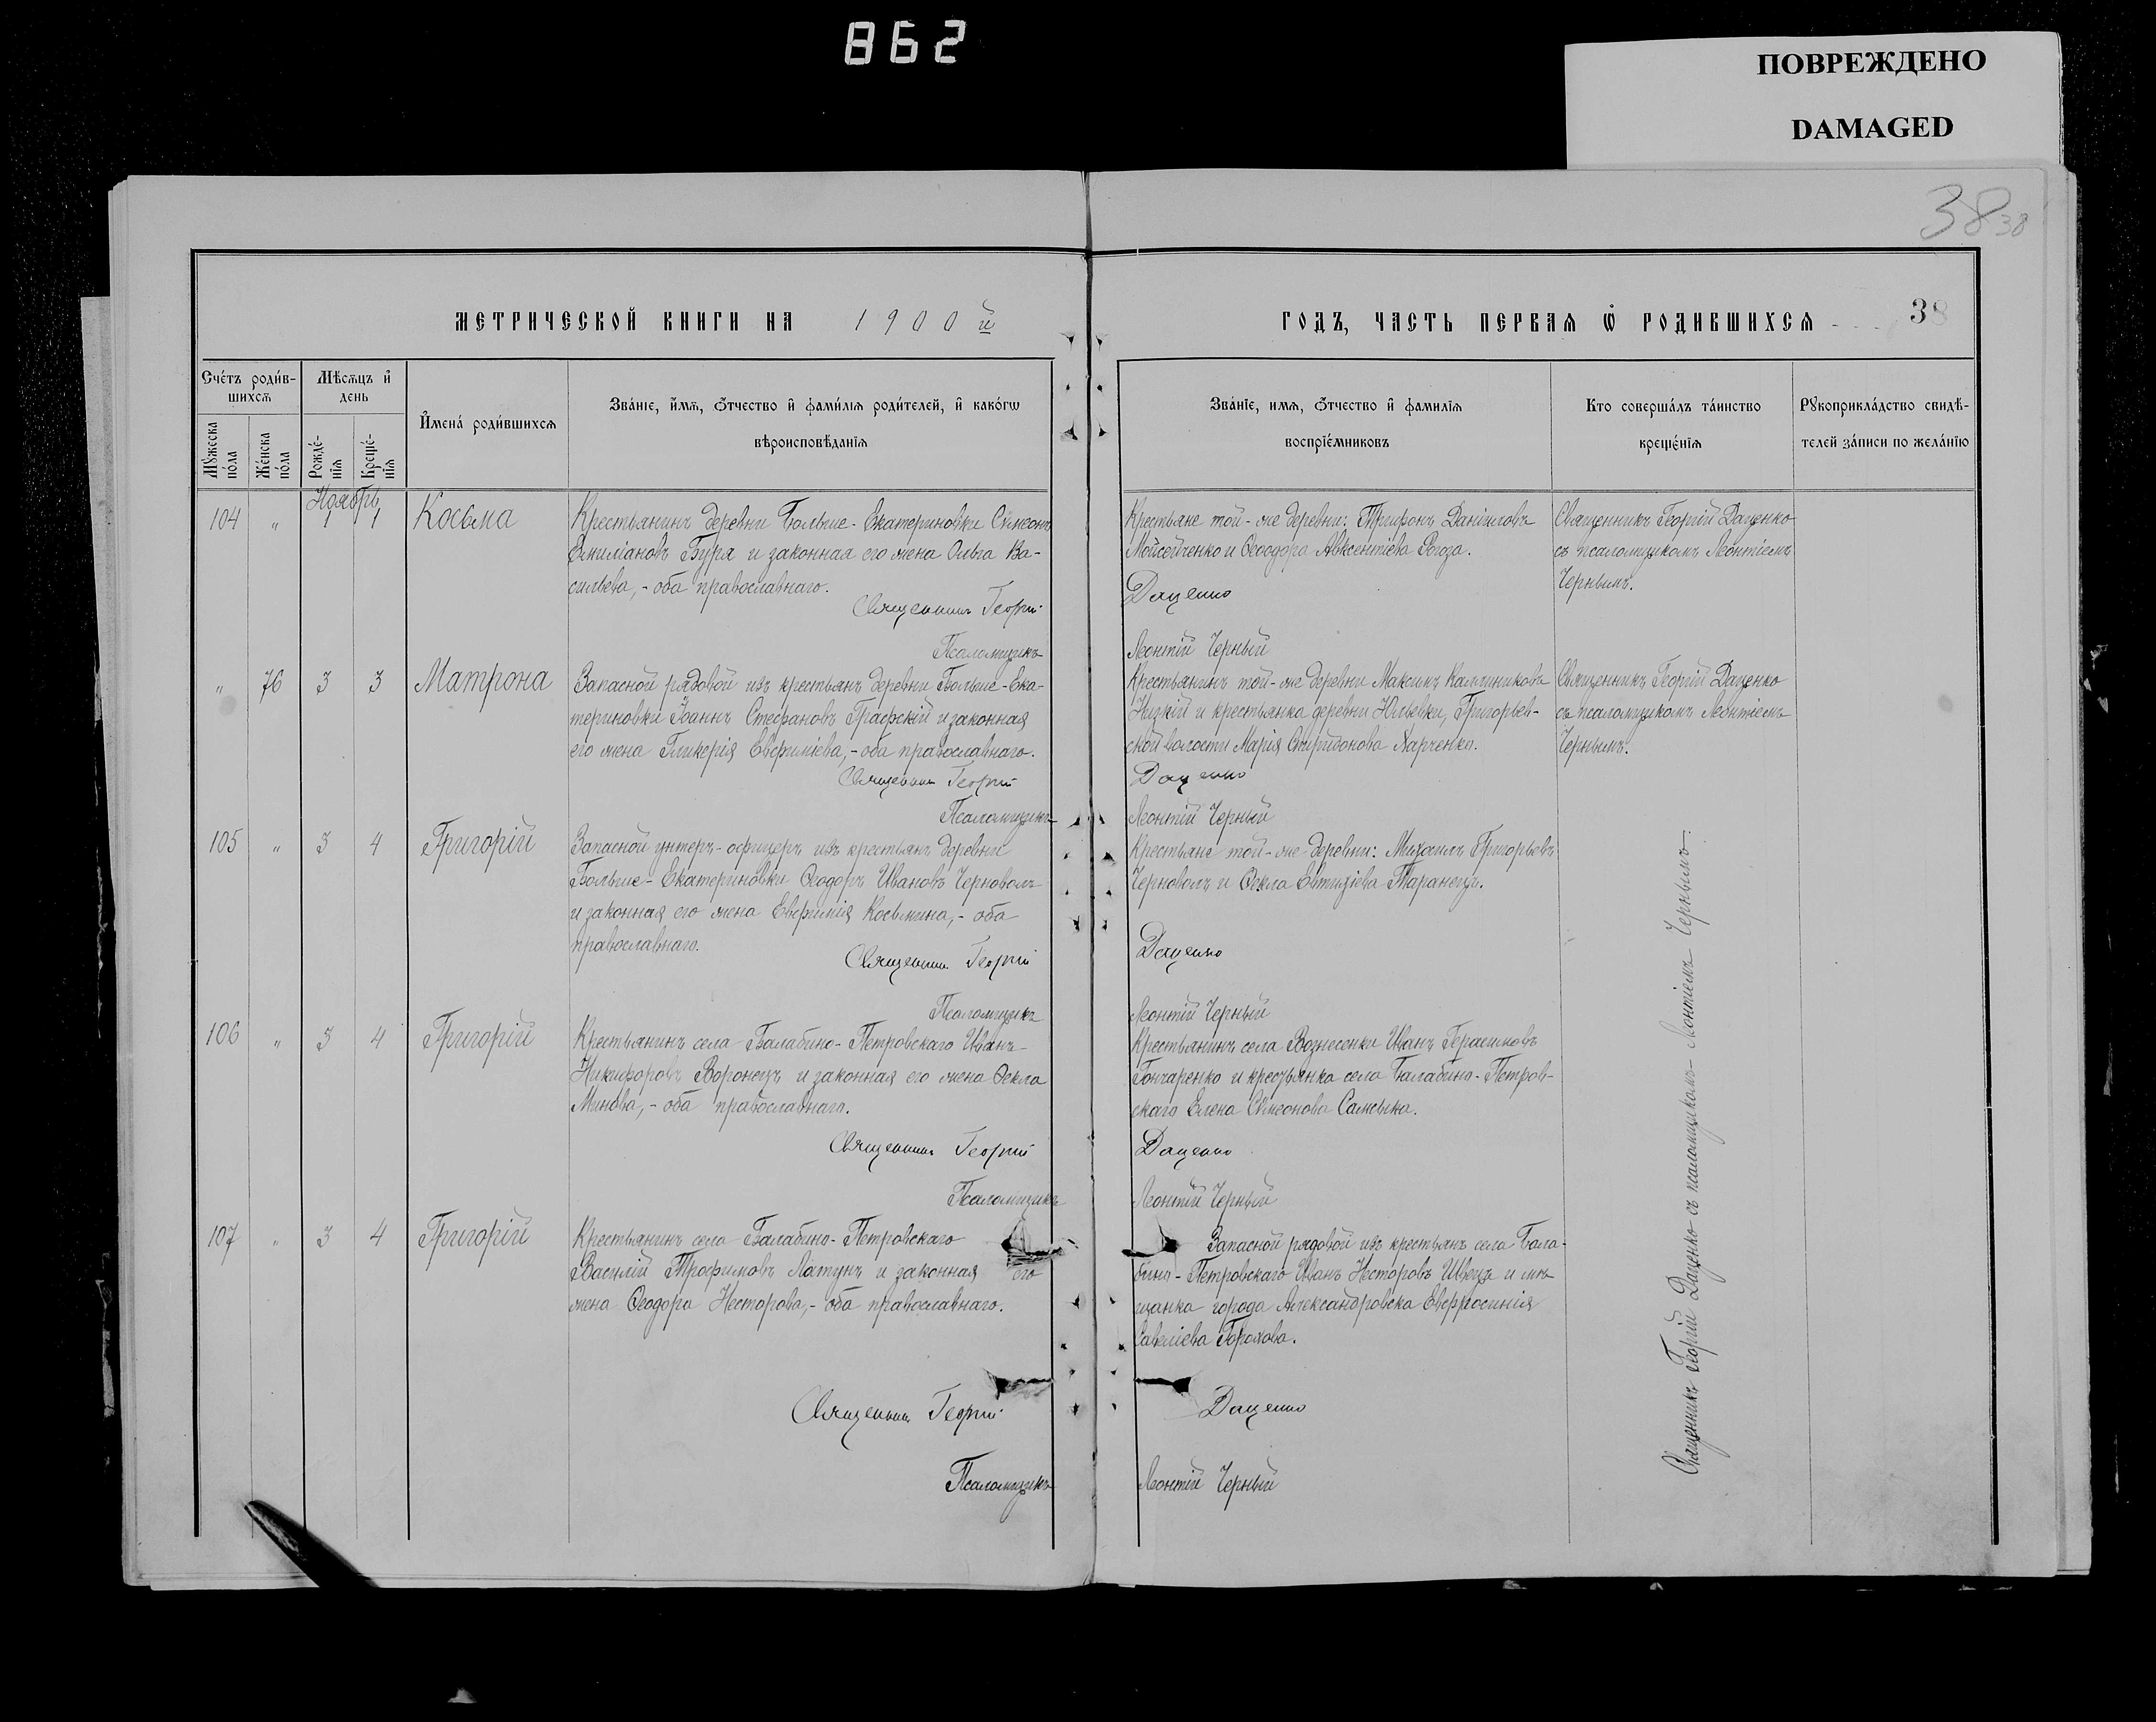 862
ПОВРЕЖДЕНО
DAMAGED
38 38
МЕТРИЧЕСКОЙ КНИГИ НА 1900й
ГОДЪ, ЧАСТЬ ПЕРВАЯ Ѡ РОДИВШИХСЯ
38
Счéтъ роди́в-
шихсѧ
Мѣсѧцъ и҆
день
Мꙋжеска
по́ла
Же́нска
по́ла
Рожде́-
нїѧ
Креще́-
нїѧ
И҆мена́ роди́вшихсѧ
Зва́нїе, и҆́мѧ, ѻ҆́тчество и҆ фами́лїѧ роди́телей, и҆ како́гѡ
вѣроисповѣ́данїѧ
Зва́нїе, имѧ, ѻ҆́тчество и҆ фамилїѧ
воспрїе́мниковъ
Кто соверша́лъ та́инство
креще́нїѧ
Рꙋкоприкла́дство свидѣ́-
телей за́писи по жела́нїю
Ноябрь
104 " 1 1 Косьма
Крестьянинъ деревни Больше-Екатериновки Симеонъ
Емиліановъ Бура и законная его жена Ольга Ва-
сильева, - оба православнаго.
Священникъ Георгій
Псаломщикъ
Крестьяне той-же деревни: Трифонъ Даніиловъ
Мойсейченко и Ѳеодора Авксентіева Рогоза.
Даценко
Леонтій Черный
Священникъ Георгій Даценко
съ псаломщикомъ Леонтіемъ
Чернымъ.
" 76 3 3 Матрона
Запасной рядовой изъ крестьянъ деревни Больше-Ека-
териновки Іоаннъ Стефановъ Графскій и законная
его жена Гликерія Евфиміева, - оба православнаго.
Священникъ Георгій
Псаломщикъ
Крестьянинъ той-же деревни Максимъ Каллиниковъ
Низкій и крестьянка деревни Юльевки, Григорьев-
ской волости Марія Спиридонова Харченко.
Даценко
Леонтій Черный
Священникъ Георгій Даценко
съ псаломщикомъ Леонтіемъ
Чернымъ.
105 " 3 4 Григорій
Запасной унтеръ-офицеръ изъ крестьянъ деревни
Больше-Екатериновки Ѳеодоръ Ивановъ Черноволъ
и законная его жена Евфимія Косьмина, - оба
православнаго.
Священникъ Георгій
Псаломщикъ
Крестьяне той-же деревни: Михаилъ Григорьевъ
Черноволъ и Ѳекла Евтихіева Таранецъ.
Даценко
Леонтій Черный
106 " 3 4 Григорій
Крестьянинъ села Балабино-Петровскаго Иванъ
Никифоровъ Воронецъ и законная его жена Ѳекла
Минова, - оба православнаго.
Священникъ Георгій
Псаломщикъ
Крестьянинъ села Вознесенки Иванъ Герасимовъ
Гончаренко и крестьянка села Балабино-Петров-
скаго Елена Симеонова Самсыка.
Даценко
Леонтій Черный
107 " 3 4 Григорій
Крестьянинъ села Балабино-Петровскаго
Василій Трофимовъ Латунъ и законная его
жена Ѳеодора Несторова, - оба православнаго.
Священникъ Георгій
Псаломщикъ
Запасной рядовой изъ крестьянъ села Бала-
бино-Петровскаго Иванъ Несторовъ Швецъ и мѣ-
щанка города Александровска Евфросинія
Савеліева Горохова.
Даценко
Леонтій Черный
Священникъ Георгій Даценко съ псаломщикомъ Леонтіемъ Чернымъ.